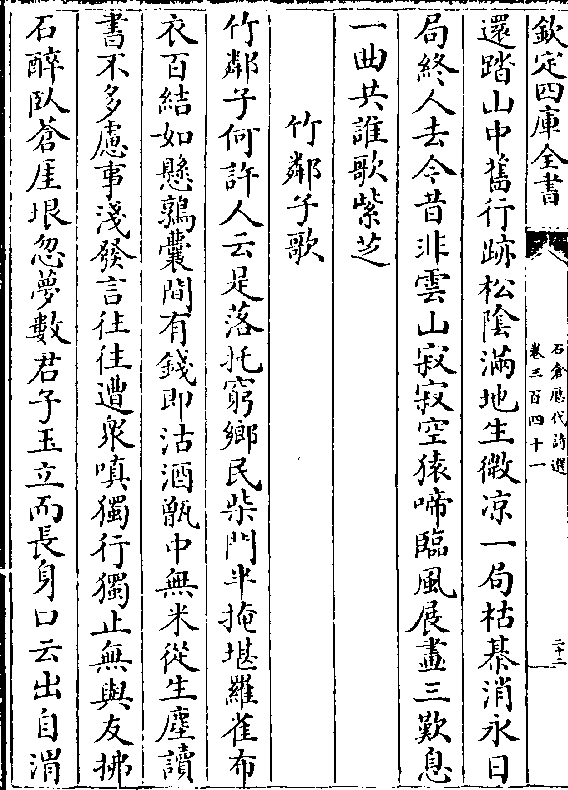 欽定四庫全書
石倉歷代詩選
卷三百四十一
二十二
還踏山中舊行跡松隂滿地生微凉一局枯棊消永日
局終人去今昔非雲山寂寂空猿啼臨風展畫三歎息
一曲共誰歌紫芝
竹鄰子歌
竹鄰子何許人云是落托窮鄉民柴門半掩堪羅雀布
衣百結如懸鶉囊間有錢即沽酒甑中無米從生塵讀
書不多慮事淺發言往往遭衆嗔獨行獨止無與友拂
石醉臥蒼厓垠忽夢數君子玉立而長身口云出自渭